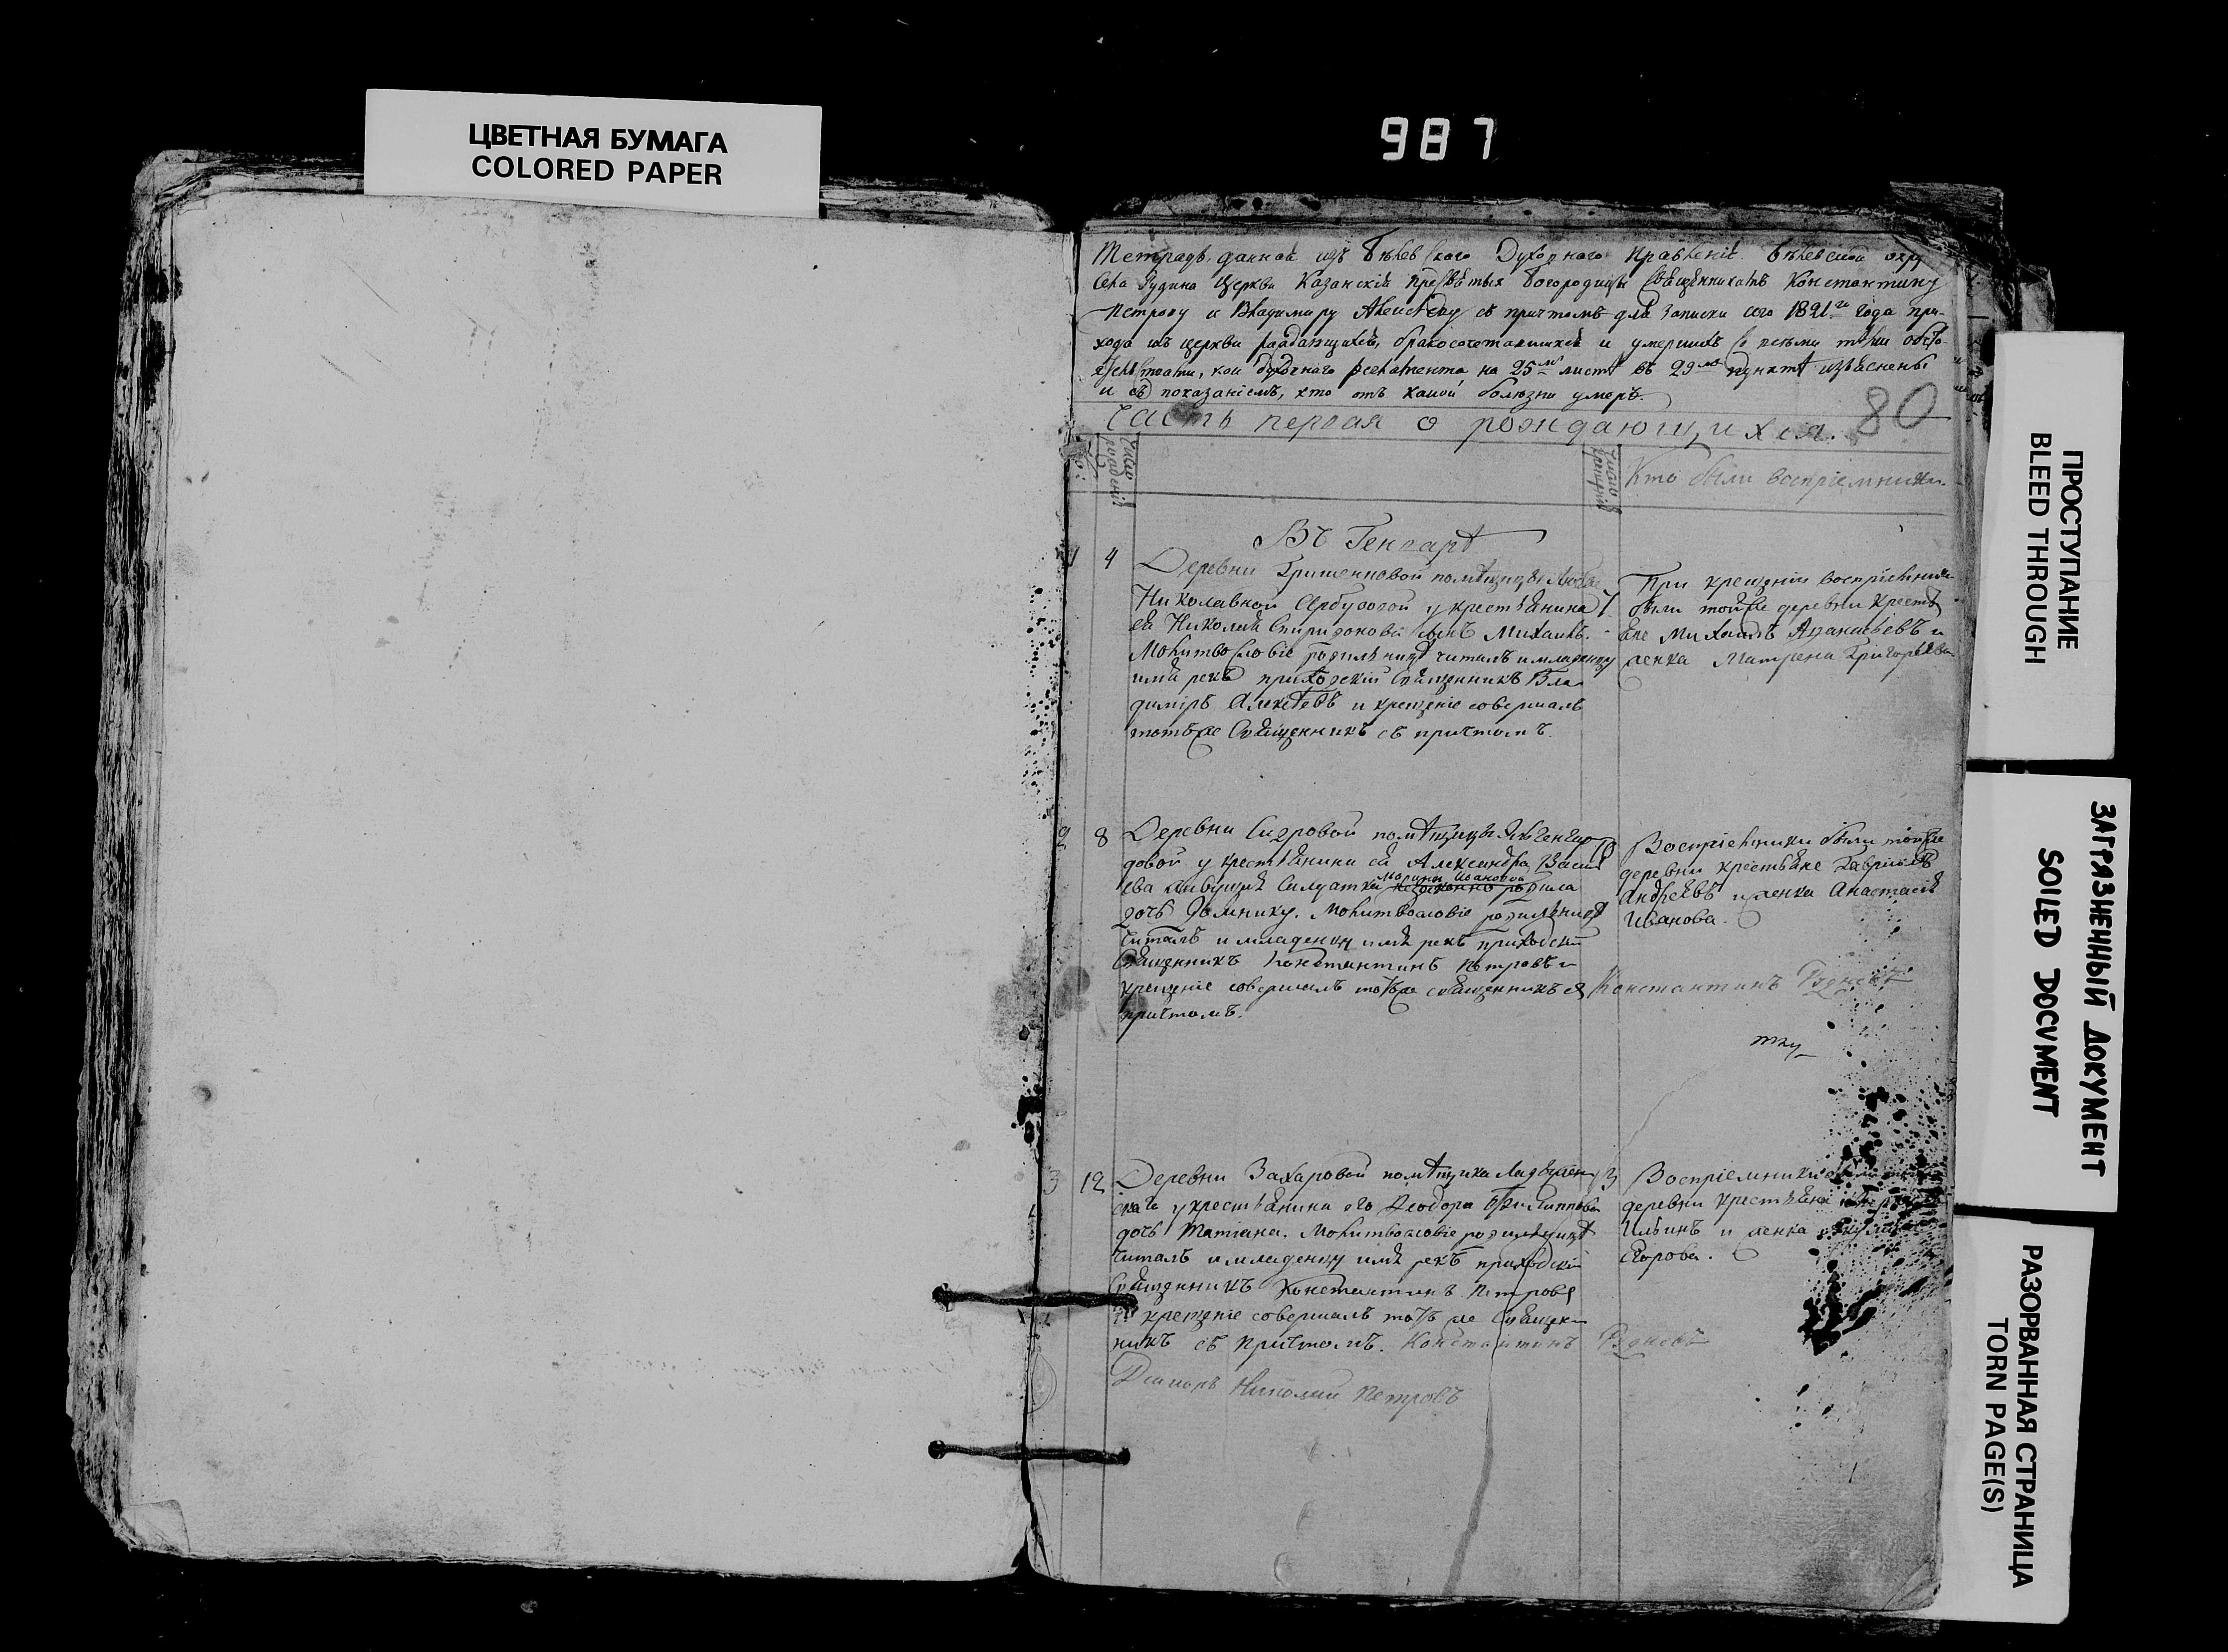 ЦВЕТНАЯ БУМАГА
COLORED PAPER
987
Тетрадь данная изъ Бѣлевского Духовного Правленія Бѣлевской окру
Села Рудина Церкви Казанскія Пресвятыя Богородицы Священникамъ Константину
Петрову и Владимиру Алексѣеву съ причтомъ для записки сего 1821го года при-
хода ихъ церкви раждающихся, бракосочетавшихся и умершихъ со всѣми тѣми обсто-
ятельствами, кои Духовнаго регламента на 25мъ листѣ въ 29мъ пунктѣ изъяснены
и съ показаніемъ, кто отъ какой болѣзни умеръ.
Часть первая о рождающихся.
80
Число рожденій
Число крещенія
Кто были воспріемники
Въ Генварѣ
1
4
Деревни помѣщицы
Николавной у крестьянина
ея Николая Спиридонова сынъ Михаилъ.
Молитвословіе родильницѣ читалъ и младенцу
имя рекъ приходскій Священникъ Вла
димиръ Алексѣевъ и крещеніе совершалъ
тотъ же Священникъ съ причтомъ.
7
При крещеніи воспріемники
были той же деревни кресть
яне Михаилъ и
женка Матрена Григорьева
2
8
Деревни помѣщицы
довой у крестьянина ея Александра Васил
ева живущая Салдатка Ивановна родила
дочь Домнику. Молитвословіе родильницѣ
читалъ и младенцу имя рекъ приходскій
Священникъ Константинъ Петровъ и
крещеніе совершалъ тотъ же священникъ съ
причтомъ.
10
Воспріемники были той же
деревни крестьяне Гавріилъ
Андреевъ и женка Анастасія
Иванова.
Константинъ Рудневъ
3
12
Деревни Захаровой помѣщика
скаго у крестьянина его Ѳеодора Филиппова
дочь Татіана. Молитвословіе родильницѣ
читалъ и младенцу имя рекъ приходскій
Священникъ Константинъ Петровъ
и крещеніе совершалъ тотъ же Священ
никъ съ причтомъ. Константинъ Рудневъ
13
Воспріемники были
деревни крестьяне
Ильинъ и женка
Егорова.
Николай Петровъ
ПРОСТУПАНИЕ
BLEED THROUGH
ЗАГРЯЗНЕННЫЙ ДОКУМЕНТ
SOILED DOCVMENT
РАЗОРВАННАЯ СТРАНИЦА
TORN PAGE(S)